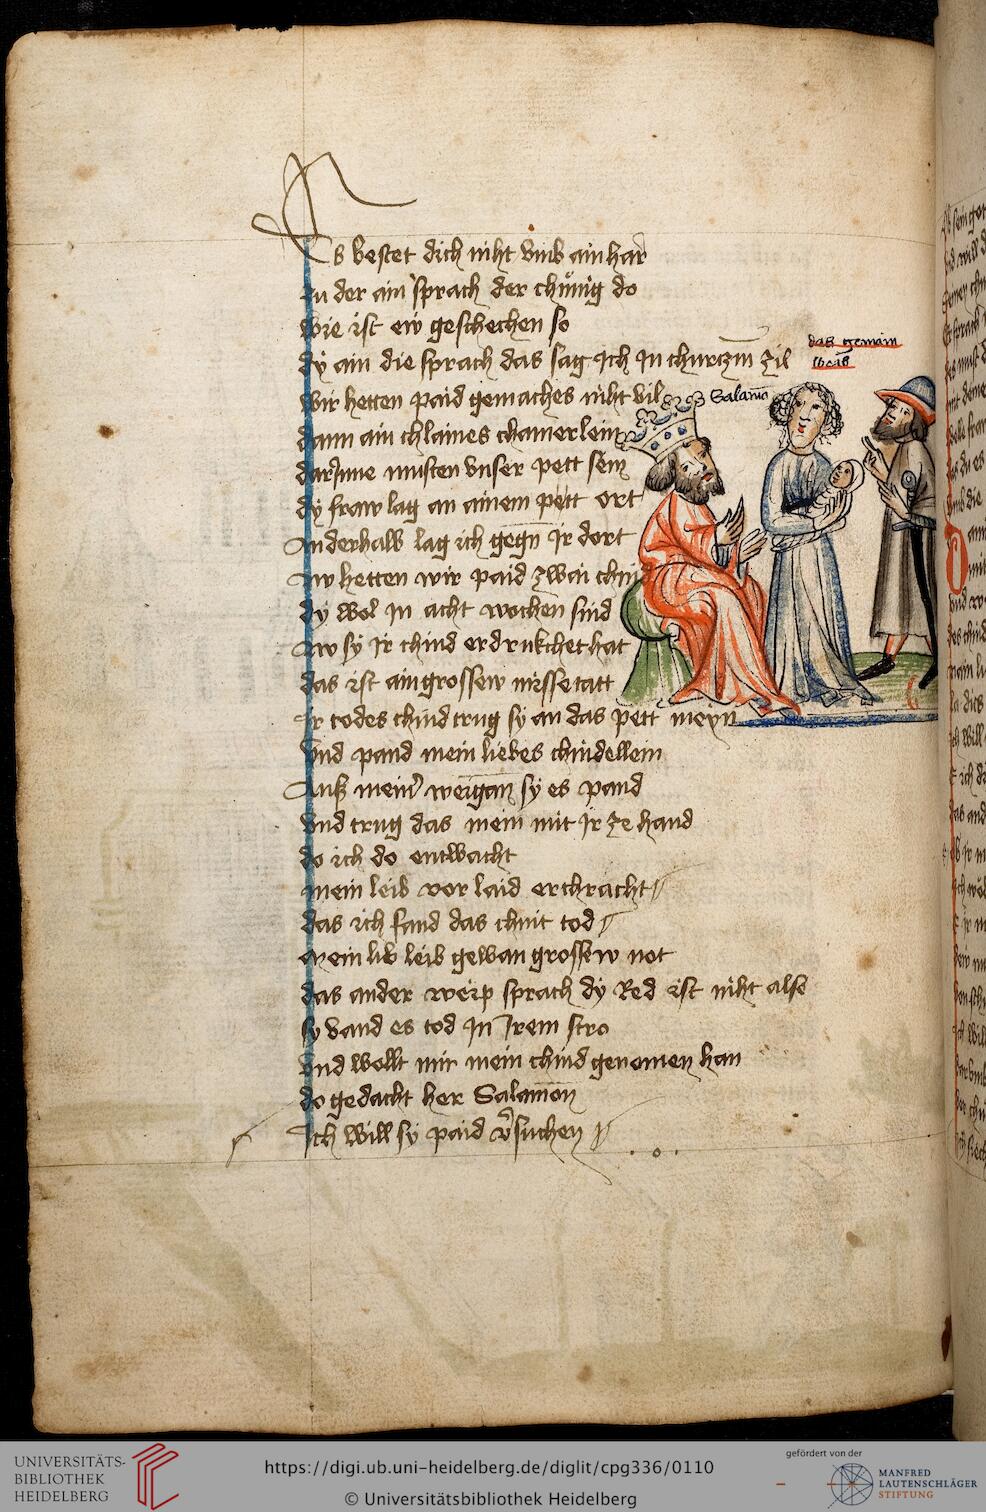 Es bestet dich niht vmb ain har
Zu der ain sprach der chünig do
wie ist ew geschechen so
dÿ ain die sprach das sag Ich In churczm zil
wir hetten paid gemaches niht vil
dann ain chlaines chamerlein
darJnne musten vnser pett sein
dÿ fraw lag an ainem pett ort
Anderhalb lag ich gegn Jr dort
Nw hetten wir paid zwai chind
dÿ wol Jn acht wochen sind
Nw sy Jr chind erdrukchet hat
das ist ain grossew missetatt
Jr todes chind trug sy an das pett meyn
vnd pand mein liebes chindellein
Auß meinr weigan sy es pand
vnd trug das mein mit Jr ze hand
do ich do entwacht
mein leib vor laid erchracht
das ich fand das chint tod
mein leib gewan grossew not
das ander weip sprach dÿ Red ist niht also
sy vand es tod Jn Jrem stro
vnd wollt mir mein chind genomen han
do gedacht her Salamon
Ich will sy paid vrsuchen
das gemain
weib
Salamō
UNIVERSITÄTS-
BIBLIOTHEK
HEIDELBERG
https://digi.ub.uni-heidelberg.de/diglit/cpg336/0110
© Universitätsbibliothek Heidelberg
gefördert von der
MANFRED
LAUTENSCHLÄGER
STIFTUNG